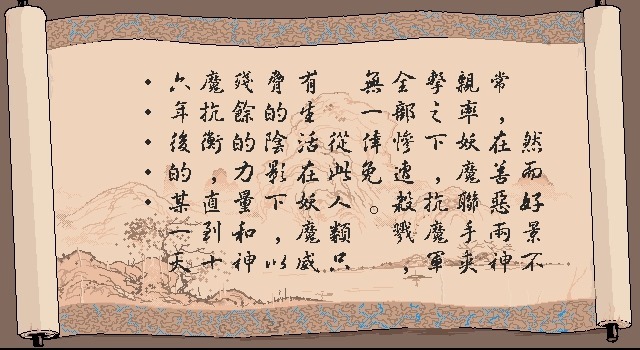 然而好景不
常，在善惡兩神
親率妖魔聯手夾
擊之下，抗魔軍
全部慘遭殺戮，
無一倖免。
從此人類只
有生活在妖魔威
脅的陰影下，以
殘餘的力量和神
魔抗衡，直到十
六年後的某一天
•••••